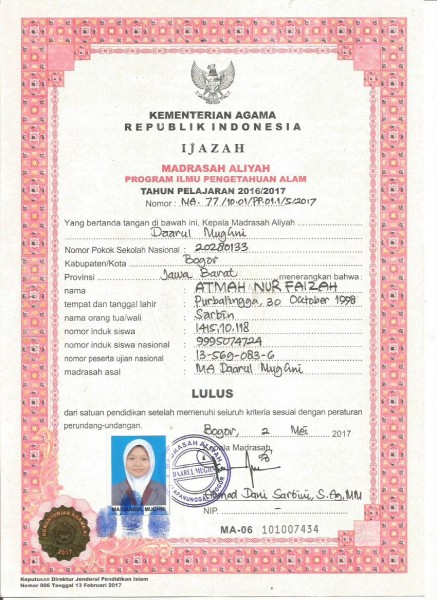 KEMENTERIAN AGAMA
REPUBLIK INDONESIA
IJAZAH
MADRASAH ALIYAH
PROGRAM ILMU PENGETAHUAN ALAM
TAHUN PELAJARAN 2016/2017
Nomor : MA. 77/10.01/PP.01.1/5/2017
Yang bertanda tangan di bawah ini, Kepala Madrasah Aliyah
Daarul Mughni
Nomor Pokok Sekolah Nasional : 20280133
Kabupaten/Kota : Bogor
Provinsi : Jawa Barat menerangkan bahwa :
nama : ATMAH NUR FAIZAH
tempat dan tanggal lahir : Purbalingga, 30 October 1998
nama orang tua/wali : Sarbin
nomor induk siswa : 1415.10.118
nomor induk siswa nasional : 9995074724
nomor peserta ujian nasional : 13-569-083-6
madrasah asal : MA Daarul Mughni
LULUS
dari satuan pendidikan setelah memenuhi seluruh kriteria sesuai dengan peraturan
perundang-undangan.
Bogor, 2 Mei 2017
Kepala Madrasah
MADRASAH ALIYAH
DAARUL MUGHNI
Ahmad Dani Sarbini, S.Ag, MM
NIP. -
MA-06 101007434
KEMENTERIAN AGAMA
2017
Keputusan Direktur Jenderal Pendidikan Islam
Nomor 906 Tanggal 13 Februari 2017